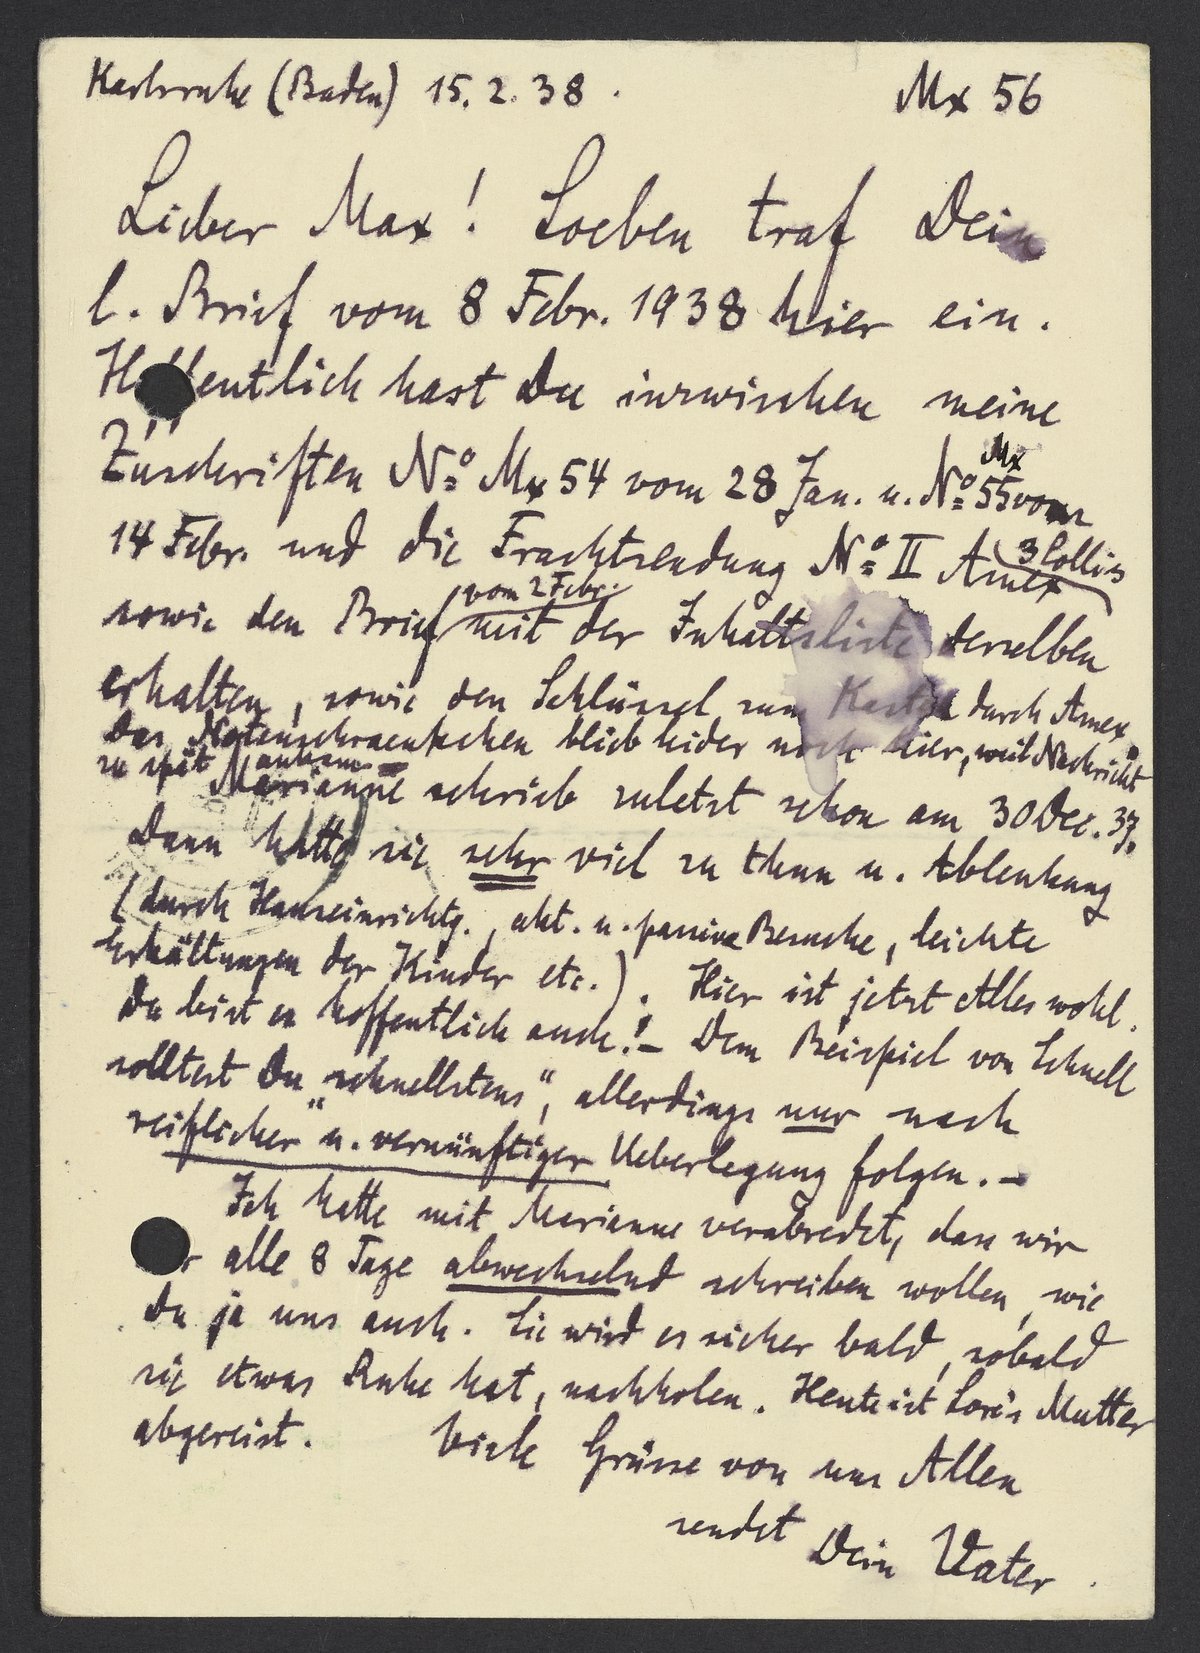 Karlsruhe (Baden) 15. 2. 38. Mx 56
Lieber Max! Soeben traf Dein
l. Brief vom 8 Febr. 1938 hier ein.
Hoffentlich hast Du inzwischen meine
Zuschriften No Mx 54 vom 28 Jan. u. No Mx 55 vom
14 Febr. und die Frachtsendung No II Amex (3 Collis)
sowie den Brief vom 2 Febr. mit der Inhaltsliste derselben
erhalten, sowie den Schlüssel zum Kasten durch Amex.
Das Notenschraenkchen blieb leider noch hier, weil Nachricht
zu spät ankam.
Marianne schrieb zuletzt schon am 30 Dec. 37.
Dann hatte sie sehr viel zu thun u. Ablenkung
(durch Hauseinrichtg., akt. u. passive Besuche, leichte
Erkältungen der Kinder etc.). Hier ist jetzt Alles wohl.
Du bist es hoffentlich auch! – Dem Beispiel von Schnell
solltest Du „schnellstens“, allerdings nur nach
reiflicher u. vernünftiger Ueberlegung folgen. –
Ich hatte mit Marianne verabredet, dass wir
alle 8 Tage abwechselnd schreiben wollen, wie
Du ja uns auch. Sie wird es sicher bald, sobald
sie etwas Ruhe hat, nachholen. Heute ist Lore's Mutter
abgereist. Viele Grüsse von uns Allen
sendet Dein Vater.